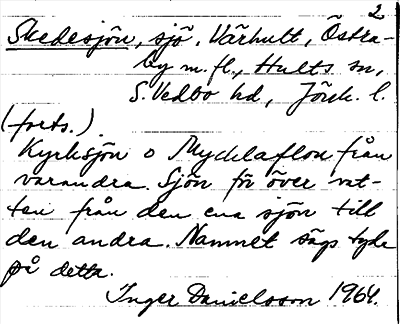 2
Skedesjön, sjö. Värhult, Östra-
by m. fl., Hults sn,
S. Vedbo hd, Jönk. l.
(forts.).
Kyrksjön o Mycklaflon från
varandra. Sjön för över vat-
ten från den ena sjön till
den andra. Namnet sägs tyda
på detta.
Inger Danielsson 1964.